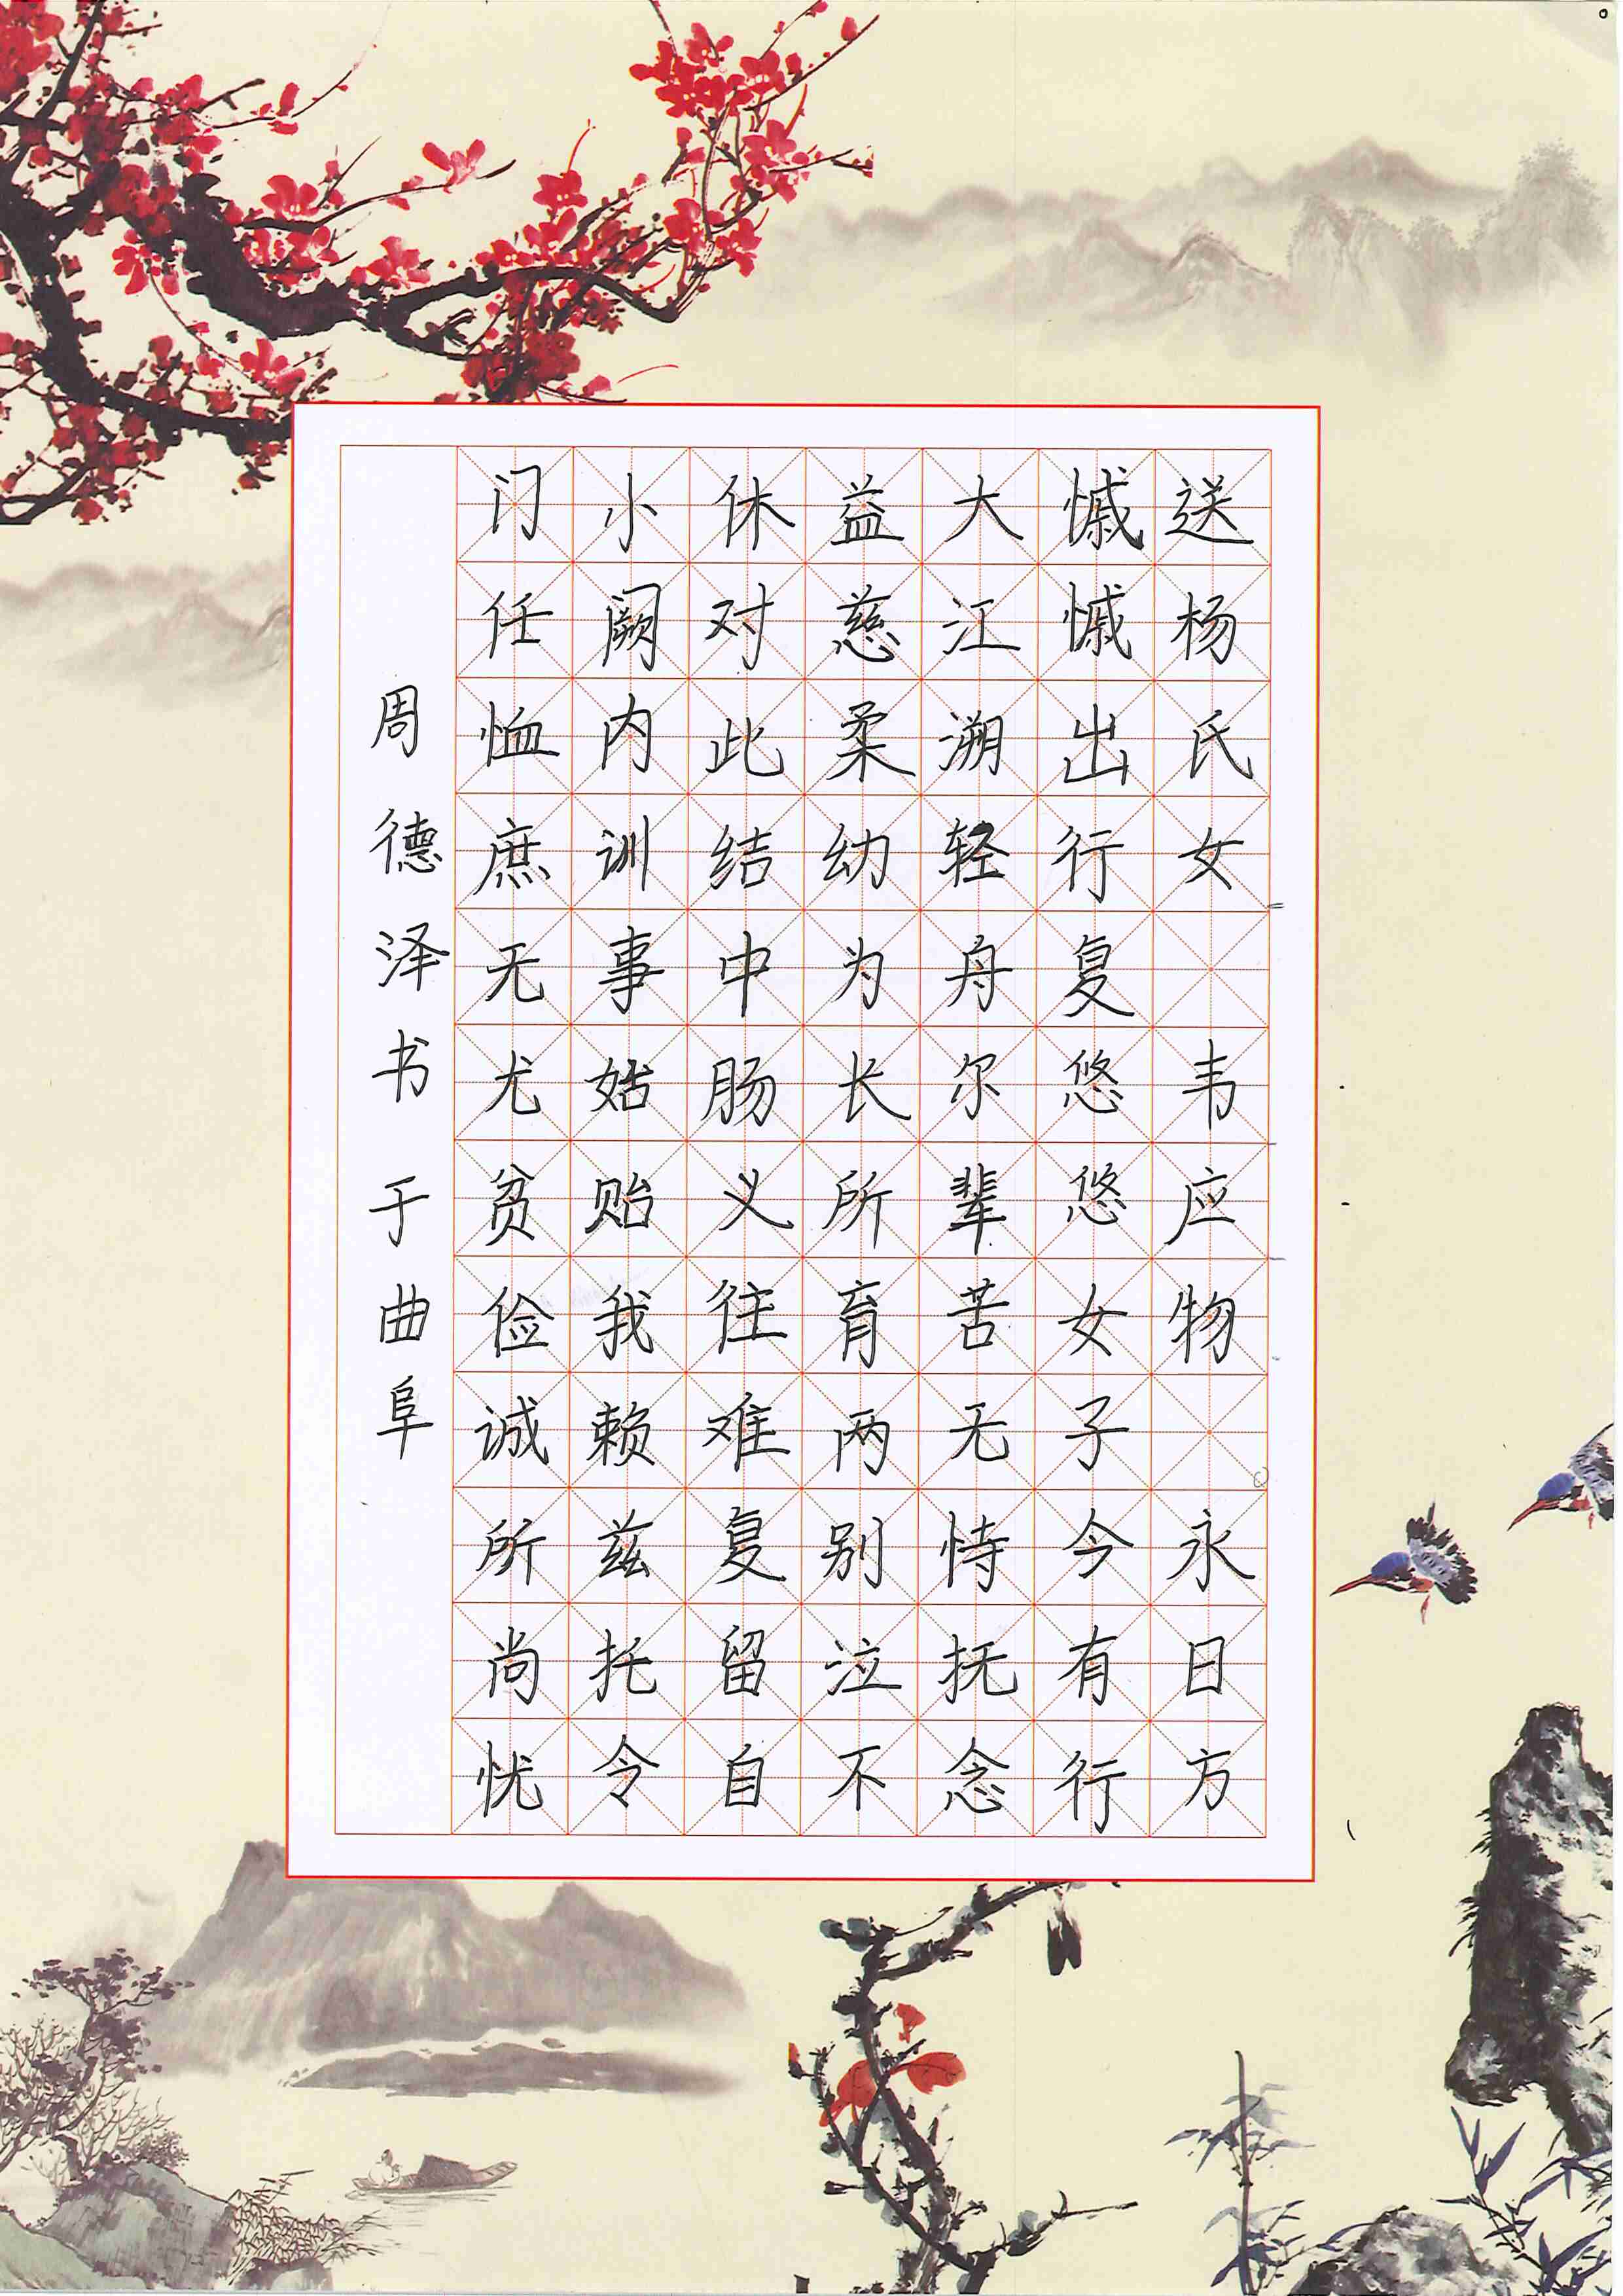 送杨氏女 韦应物 永日方
慽慽出行复悠悠女子今有行
大江溯轻舟尔辈苦无恃抚念
益慈柔幼为长所育两别泣不
休对此结中肠义往难复留自
小阙内训事姑贻我赖兹托令
门任恤庶无尤贫俭诚所尚忧
周德泽书于曲阜